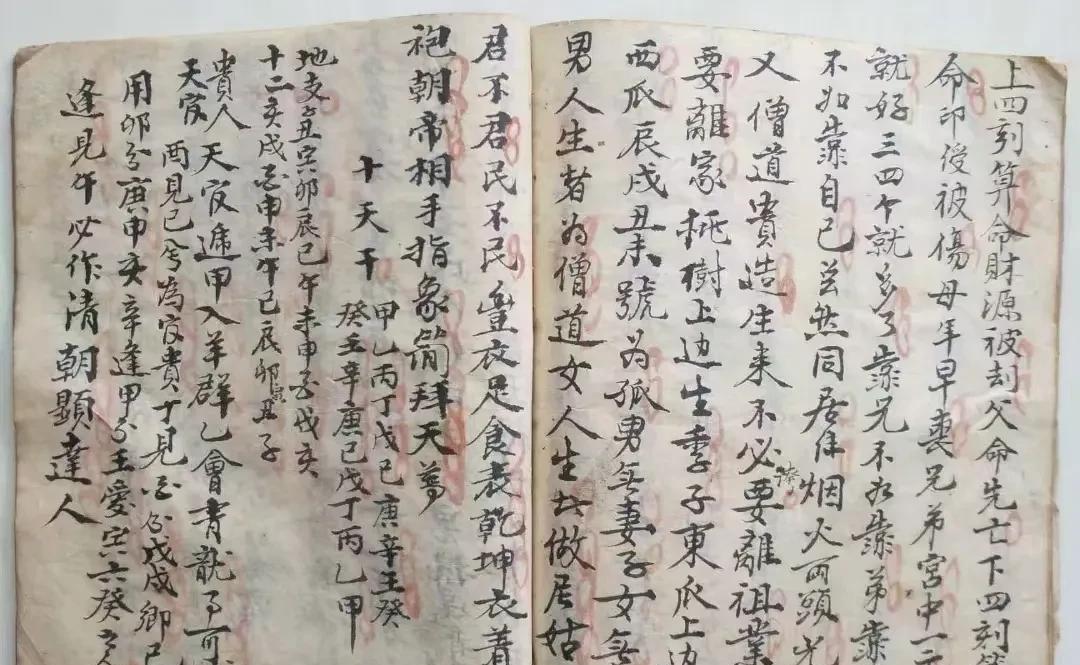 上四刻算命財源被刦父命先亡下四刻
命印綬被傷母年早喪兄弟宮中一二
就好三四个就多了靠兄不如靠弟靠
不如靠自己 同居佳烟火两頭
又僧道貴造生来不必要離祖業
要離家桃樹上边生李子東瓜上边
西瓜辰戌丑未號为孤男無妻子女無
男人生者为僧道女人生 做尼姑
君不君民不民豐衣足食表乾坤衣着
袍朝帝相手指象簡拜天
十天干
甲乙丙丁戊己庚辛壬癸
癸壬辛庚己戊丁丙乙甲
地支 丑寅卯辰巳午未申 戌亥
十二亥戌 申未午巳辰卯寅丑子
貴人天官遁甲入羊群乙會青龍
天官 酉見巳 为官貴丁見 戌戌卯己
用卯 庚甲亥辛逢甲 壬愛寅六癸
逢見午必作清朝顯達人